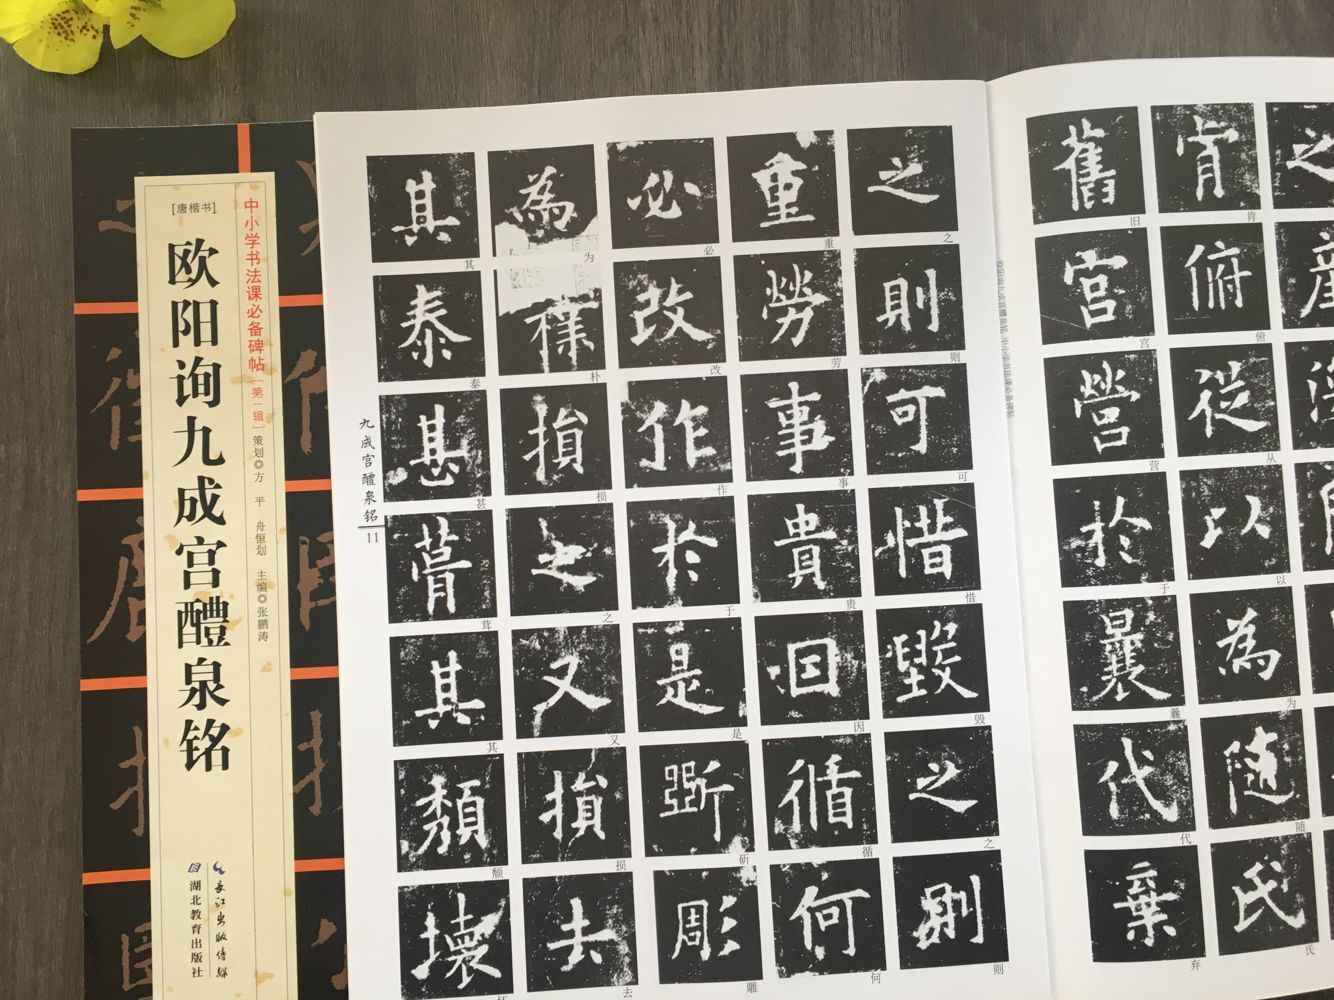 中小学书法课必备碑帖[第一辑]
策划◎方 平 舟恒划 主编◎张鹏涛
[唐楷书]
欧阳询九成宫醴泉铭
長江出版傳媒
湖北教育出版社
之
肯俯從以為隨氏
肯俯从以为随氏
舊宮營於曩代棄
旧宫营于曩代弃
欧阳询九成宫醴泉铭 中小学书法课必备碑帖
之則可惜毀之則
之则可惜毁之则
重勞事貴因循何
重劳事贵因循何
必改作於是斲彫
必改作于是斫雕
為樸損之又損去
为朴损之又损去
其泰甚葺其頹壞
其泰甚茸其颓
九成宫醴泉铭
11